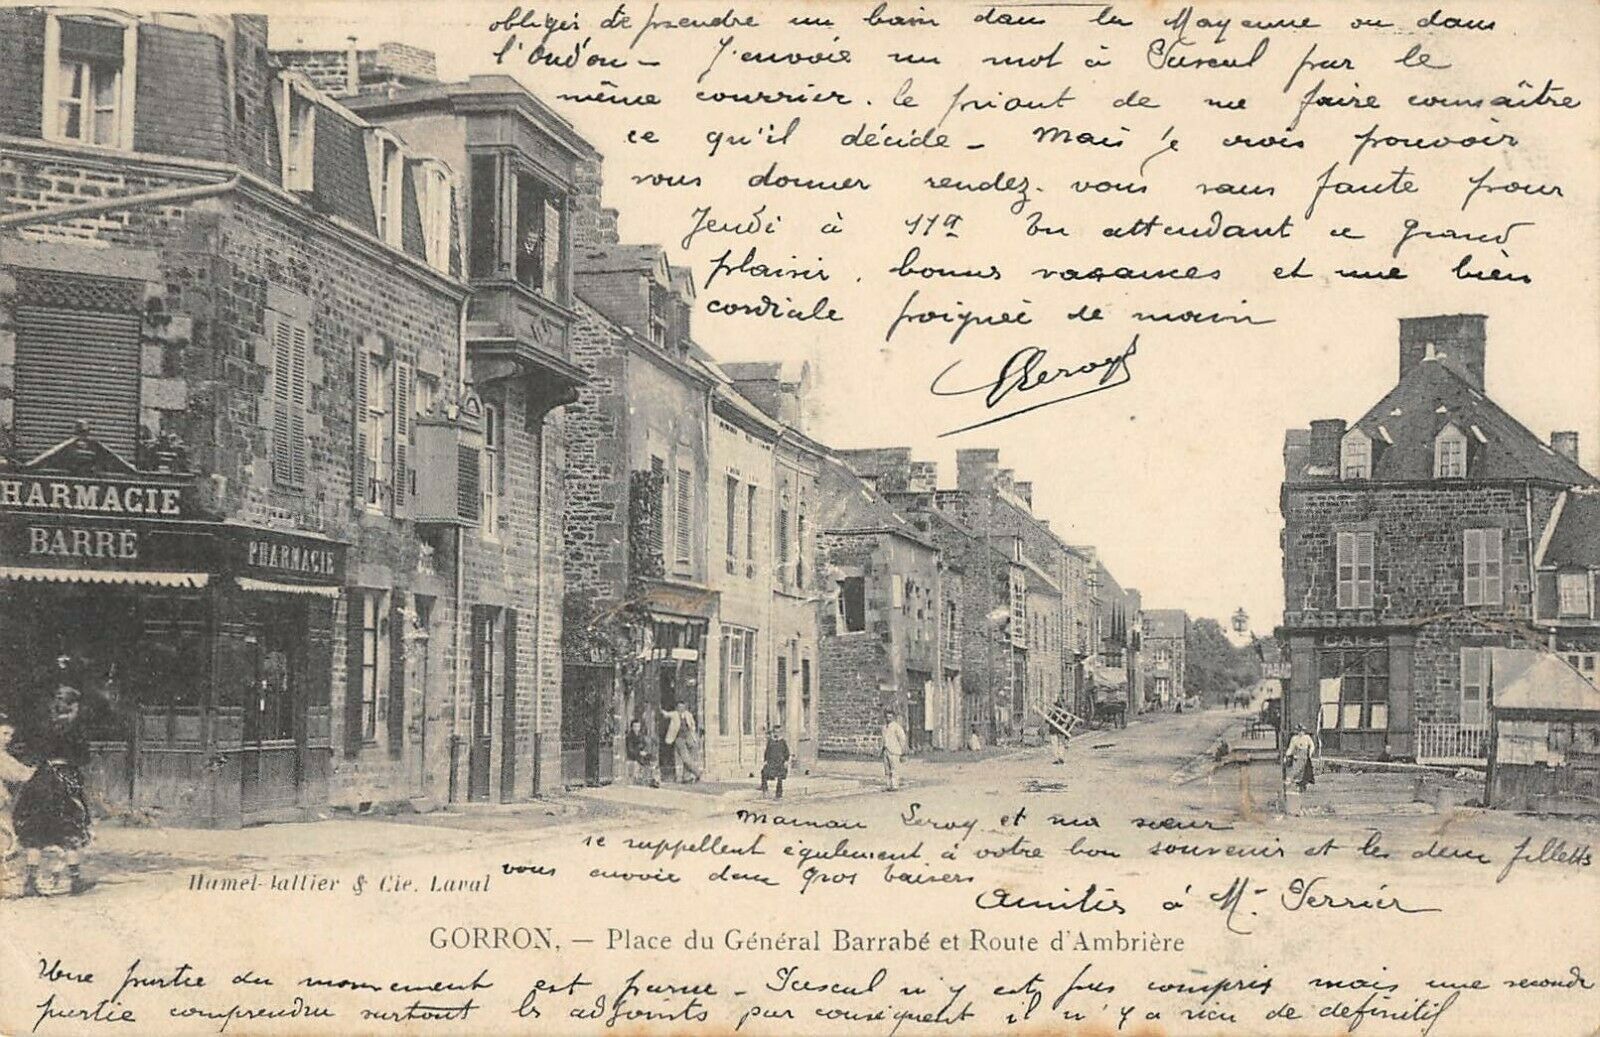 obligés de prendre un bain dans la Mayenne ou dans
l'Oudon - J'envoie un mot à par le
même courrier. le priant de me faire connaître
ce qu'il décide - Mais je crois pouvoir
vous donner rendez-vous sans faute pour
Jeudi à En attendant ce grand
plaisir, bonnes vacances et une bien
cordiale poignée de main
Leroy
HARMACIE
BARRÉ
PHARMACIE
CAFE
Maman Leroy et ma sœur
se rappellent également à votre bon souvenir et les deux fillettes
vous envoie deux gros baisers
Amitiés à Mr
Hamel-Jallier & Cie. Laval
GORRON. — Place du Général Barrabé et Route d'Ambrière
Une partie du mouvement est parue - n'y est pas compris mais une seconde
partie comprendra surtout les adjoints par conséquent il n'y a rien de définitif